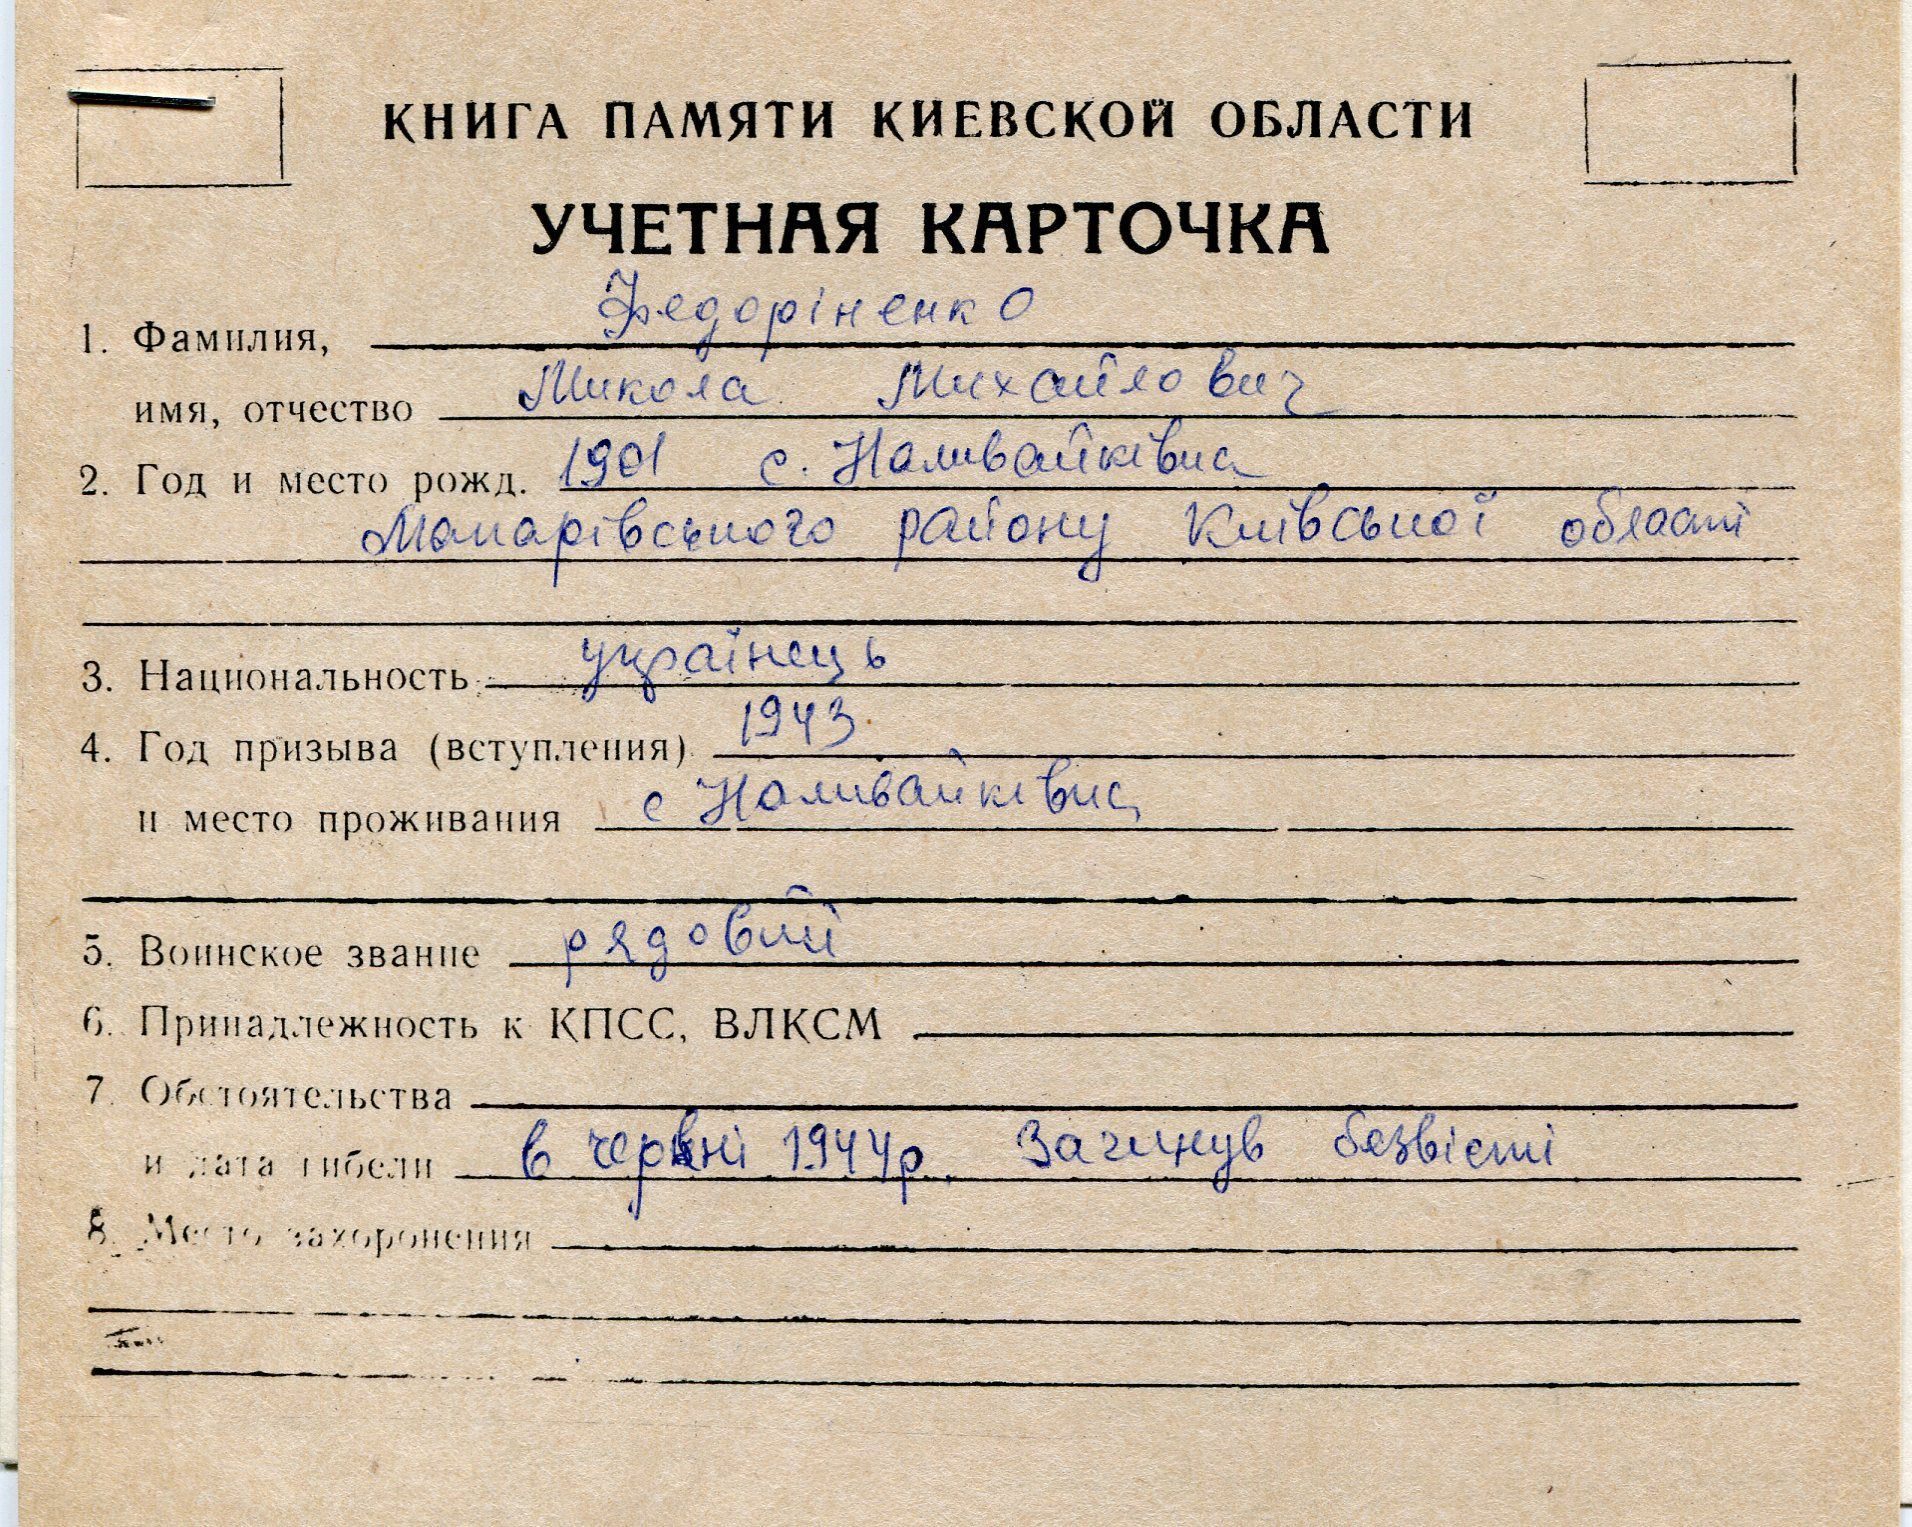 КНИГА ПАМЯТИ КИЕВСКОЙ ОБЛАСТИ
УЧЕТНАЯ КАРТОЧКА
1. Фамилия, Федоріненко
имя, отчество Микола Михайлович
2. Год и место рожд. 1901 с. Наливайківка
Макарівського району Київської області
3. Национальность українець
4. Год призыва (вступления) 1943
и место проживания с Наливайківка
5. Воинское звание рядовий
6. Принадлежность к КПСС, ВЛКСМ
7. Обстоятельства
и дата гибели в червні 1944р. Загинув безвісті
8. Место захоронения